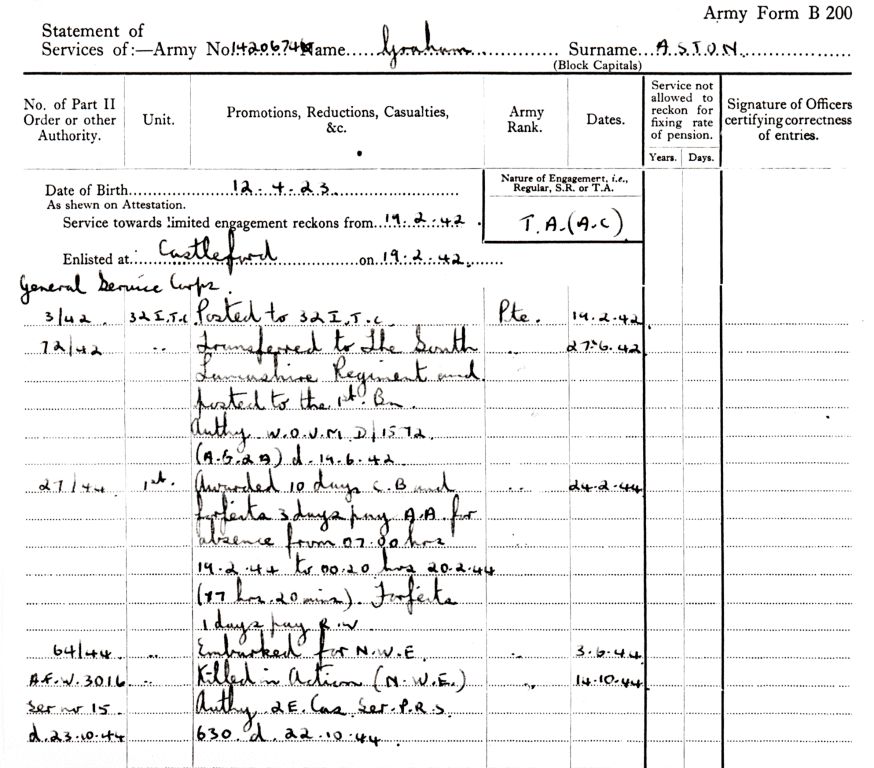 Army Form B 200
Statement of
Services of:—Army No. 14206746 Name Graham Surname ASTON
(Block Capitals)
No. of Part II Order or other Authority. Unit. Promotions, Reductions, Casualties, &c. Army Rank. Dates. Service not allowed to reckon for fixing rate of pension. Signature of Officers certifying correctness of entries.
Years. Days.
Date of Birth 12.4.23 Nature of Engagement, i.e., Regular, S.R. or T.A.
As shewn on Attestation.
Service towards limited engagement reckons from 19.2.42. T.A.(A.C)
Enlisted at Castleford on 19.2.42.
General Service Corps.
3/42 32 I.T.C. Posted to 32 I.T.C. Pte. 19.2.42
72/42 " Transferred to the South " 27.6.42
Lancashire Regiment and
posted to the 1st. Bn.
Authy W.O.U.M D/1572
(A.G.2B) d. 19.6.42
27/44 1st. Awarded 10 days C.B and " 24.2.44
forfeits 3 days pay A.A. for
absence from 07.00 hrs
19.2.44 to 00.20 hrs 20.2.44
(17 hrs. 20 mins). Forfeits
1 days pay R.W
64/44 " Embarked for N.W.E. " 3.6.44
A.F.W.3016 " Killed in Action (N.W.E.) " 14.10.44
Ser no 15. Authy 2E. Cas Ser. P.R.S.
d. 23.10.44 630 d. 22.10.44.